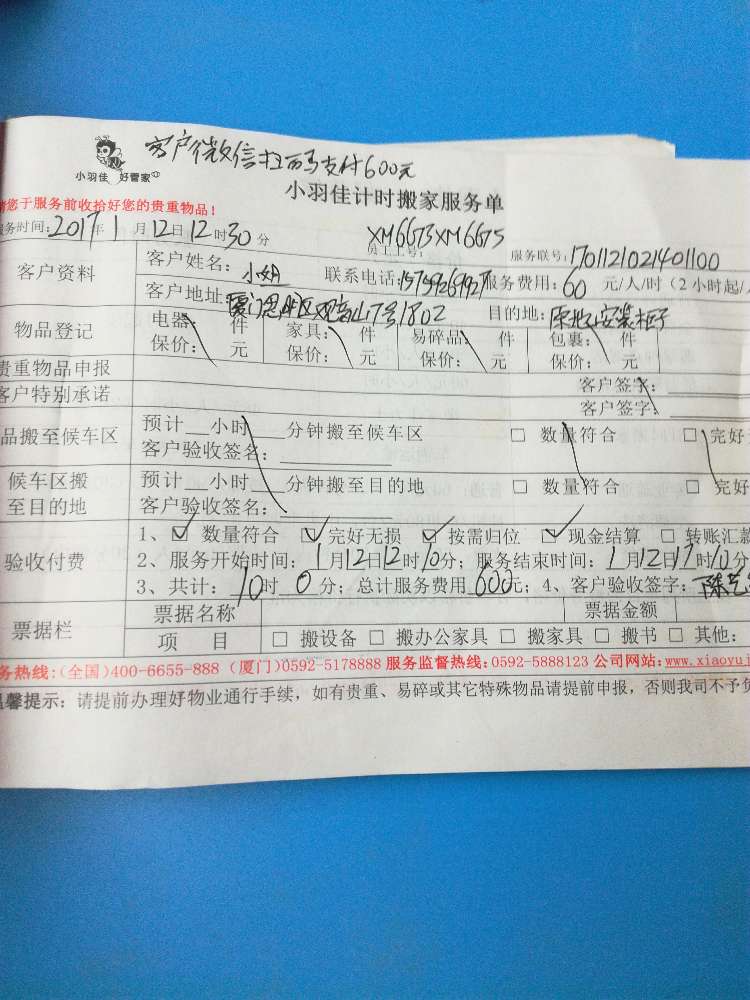 客户微信扫码支付600元
小羽佳 好管家
小羽佳计时搬家服务单
您于服务前收拾好您的贵重物品!
务时间:2017年1月12日12时30分 员工工号: XM6673XM6675 服务联号:1701121021401100
客户资料 客户姓名:小姐 联系电话: 服务费用:60元/人/时(2小时起/
客户地址:厦门思明区观音山7号1802 目的地:原地安装柜子
物品登记 电器: 件 家具: 件 易碎品: 件 包裹: 件
保价: 元 保价: 元 保价: 元 保价: 元
贵重物品申报 客户签字:
客户特别承诺 客户签字:
品搬至候车区 预计__小时__分钟搬至候车区 □ 数量符合 □ 完好
客户验收签名:
候车区搬至目的地 预计__小时__分钟搬至目的地 □ 数量符合 □ 完好
客户验收签名:
验收付费 1、☑ 数量符合 ☑ 完好无损 ☑ 按需归位 ☑ 现金结算 □ 转账汇款
2、服务开始时间:1月12日12时10分;服务结束时间:1月12日17时10分
3、共计:10时0分;总计服务费用600元;4、客户验收签字:陈艺
票据栏 票据名称 票据金额
项 目 □ 搬设备 □ 搬办公家具 □ 搬家具 □ 搬书 □ 其他:
务热线:(全国)400-6655-888 (厦门)0592-5178888 服务监督热线:0592-5888123 公司网站:www.xiaoyuj
温馨提示:请提前办理好物业通行手续,如有贵重、易碎或其它特殊物品请提前申报,否则我司不予负